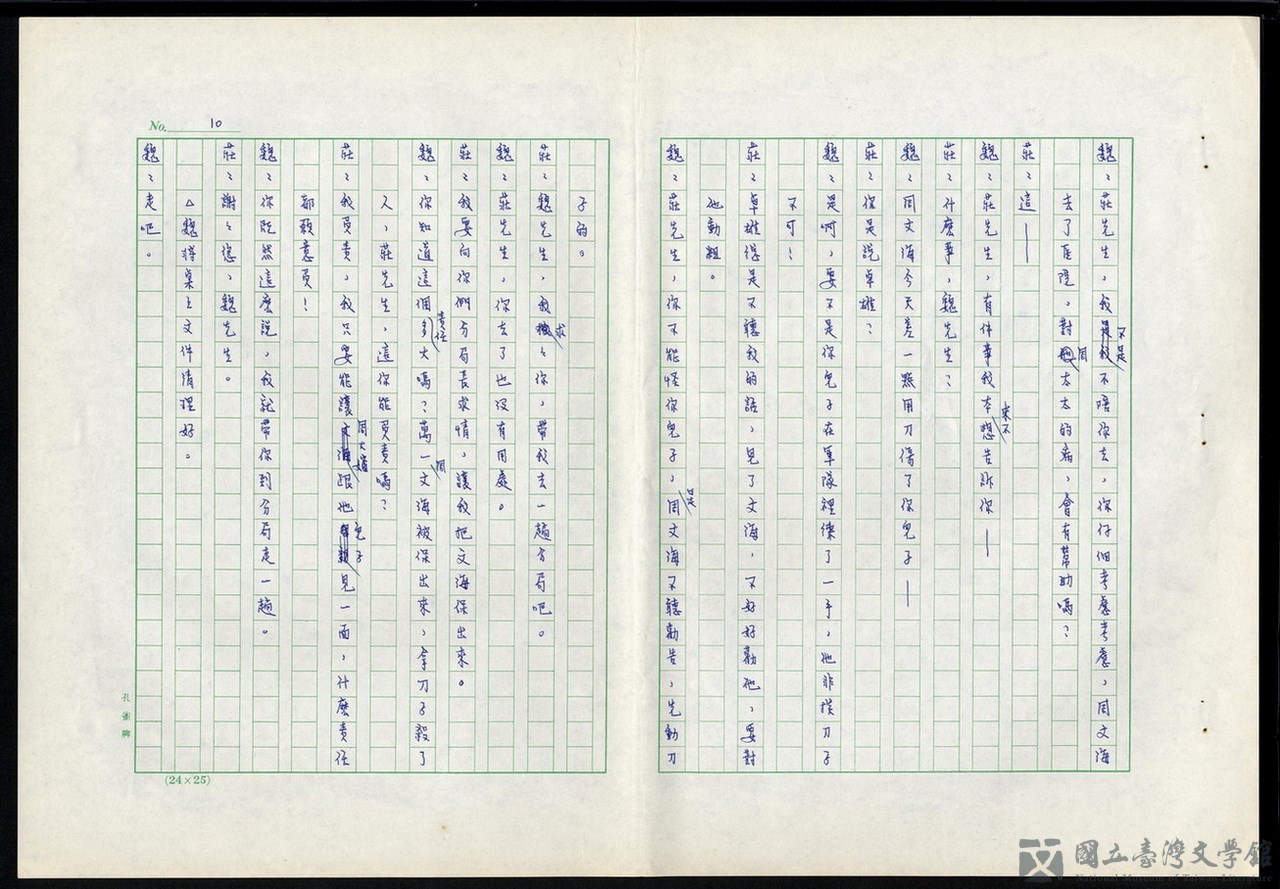 魏：莊先生，我不是不陪你去，你仔細考慮考慮，周文海
去了醫院，對周太太的病，會有幫助嗎？
莊：這——
魏：莊先生，有件事我本來不想告訴你——
莊：什麼事，魏先生？
魏：周文海今天差一點用刀傷了你兒子——
莊：你是說卓雄？
魏：是啊，要不是你兒子在軍隊裡學了一手，他非挨刀子
不可！
莊：卓雄總是不聽我的話，見了文海，不好好勸他，要對
他動粗。
魏：莊先生，你不能怪你兒子，是周文海不聽勸告，先動刀
子的。
莊：魏先生，我求求你，帶我去一趟分局吧。
魏：莊先生，你去了也沒有用處。
莊：我要向你們分局長求情，讓我把文海保出來。
魏：你知道這個責任多大嗎？萬一周文海被保出來，拿刀子殺了
人，莊先生，這你能負責嗎？
莊：我負責，我只要能讓周大嬸跟他兒子見一面，什麼責任
都願意負！
魏：你既然這麼說，我就帶你到分局走一趟。
莊：謝謝您，魏先生。
△魏將桌上文件清理好。
魏：走吧。
No. 10
(24×25)
孔雀牌
國立臺灣文學館
National Museum of Taiwan Literature